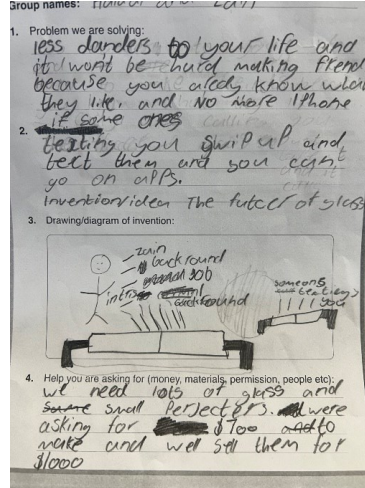 Group names:
1. Problem we are solving:
less danders to your life and
it won't be hurd making frend
because you aredy know what
they like, and NO more iPhone
2. if some ones
texting you swip up and
text them and you cant
go on apps.
Invention/idea The futcer of glass
3. Drawing/diagram of invention:
zain
backround
job
intris
backround
someons
texting
you
4. Help you are asking for (money, materials, permission, people etc):
we need lots of glass and
small Perjecters. were
asking for $700 to
make and well sell them for
$1000